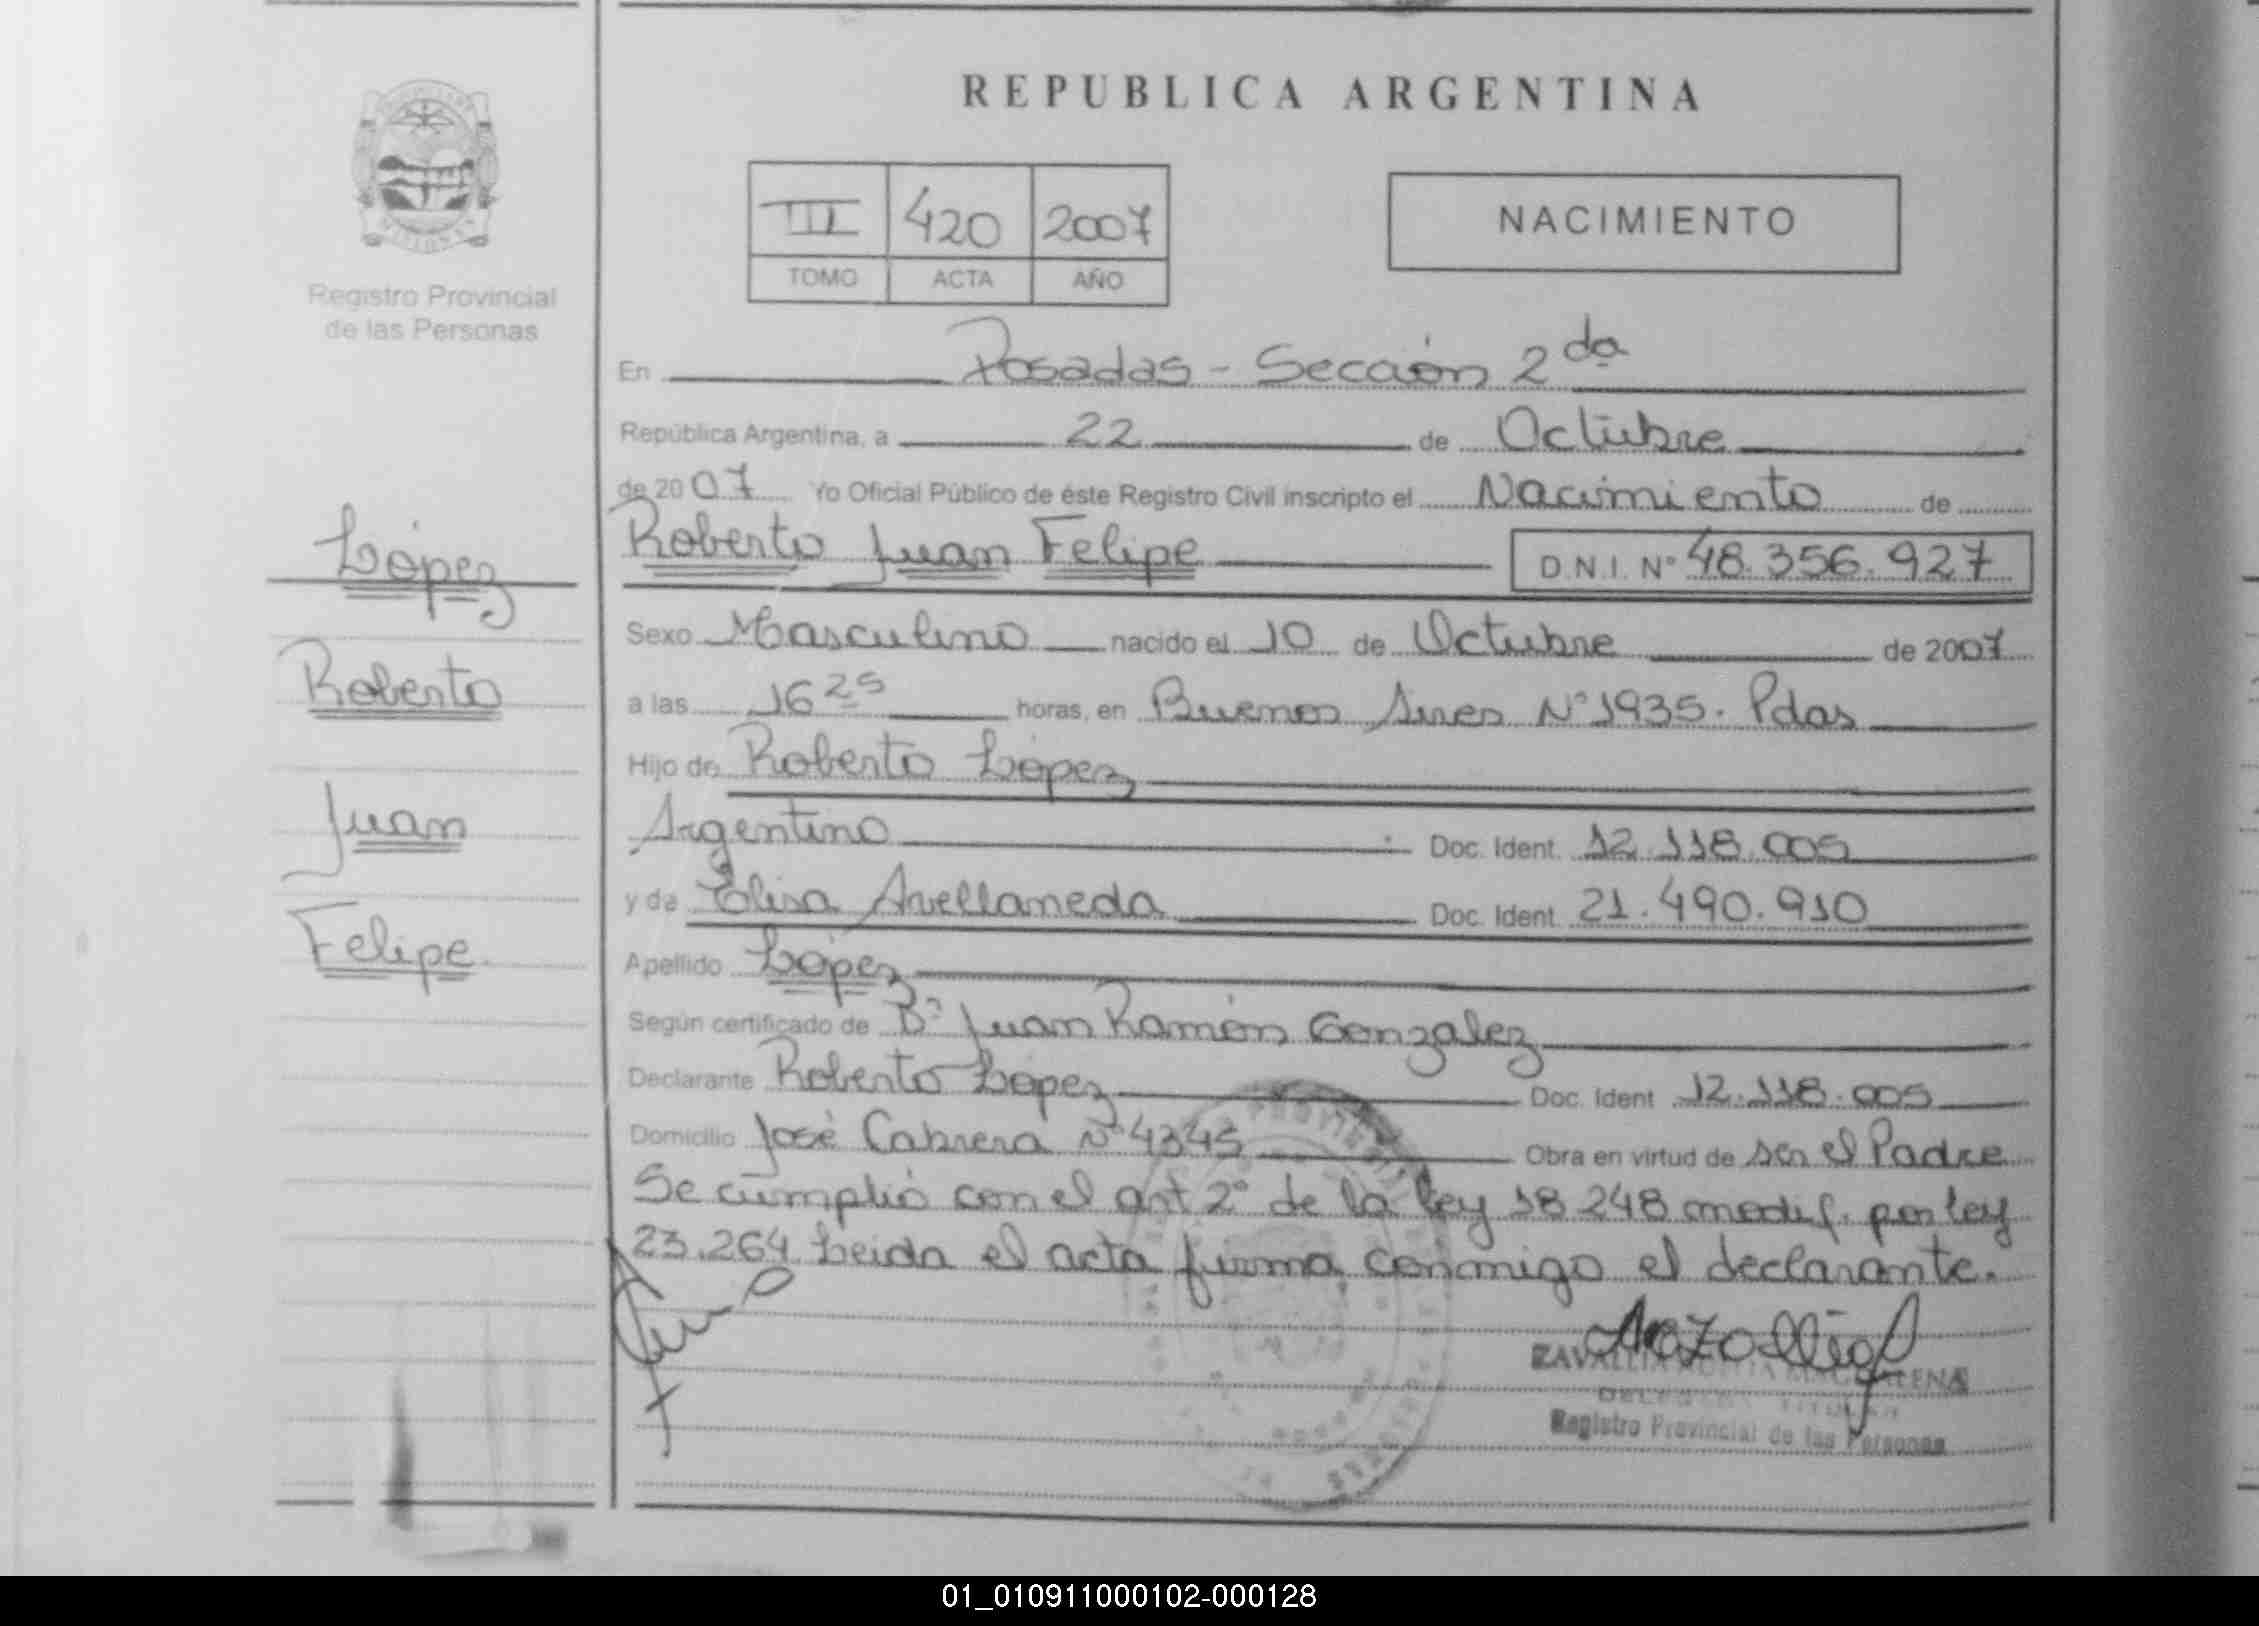 REPUBLICA ARGENTINA
III 420 2007
TOMO ACTA AÑO
NACIMIENTO
Registro Provincial
de las Personas
López
Roberto
Juan
Felipe
En Posadas - Sección 2da
República Argentina, a 22 de Octubre
de 2007 Yo Oficial Público de éste Registro Civil inscripto el Nacimiento de
Roberto Juan Felipe D.N.I. Nº 48.356.927
Sexo Masculino nacido el 10 de Octubre de 2007
a las 16 25 horas, en Buenos Aires Nº 1935. Pdas
Hijo de Roberto López
Argentino Doc. Ident. 12.118.005
y de Elisa Avellaneda Doc. Ident. 21.490.910
Apellido López
Según certificado de Juan Ramón Gonzalez
Declarante Roberto López Doc. Ident 12.118.005
Domicilio José Cabrera Nº 4345 Obra en virtud de ser el Padre
Se cumplió con el art 2º de la ley 18 248 modif. por ley
23.264 Leida el acta firma conmigo el declarante.
MAGDALENA
Registro Provincial de las Personas
01_010911000102-000128